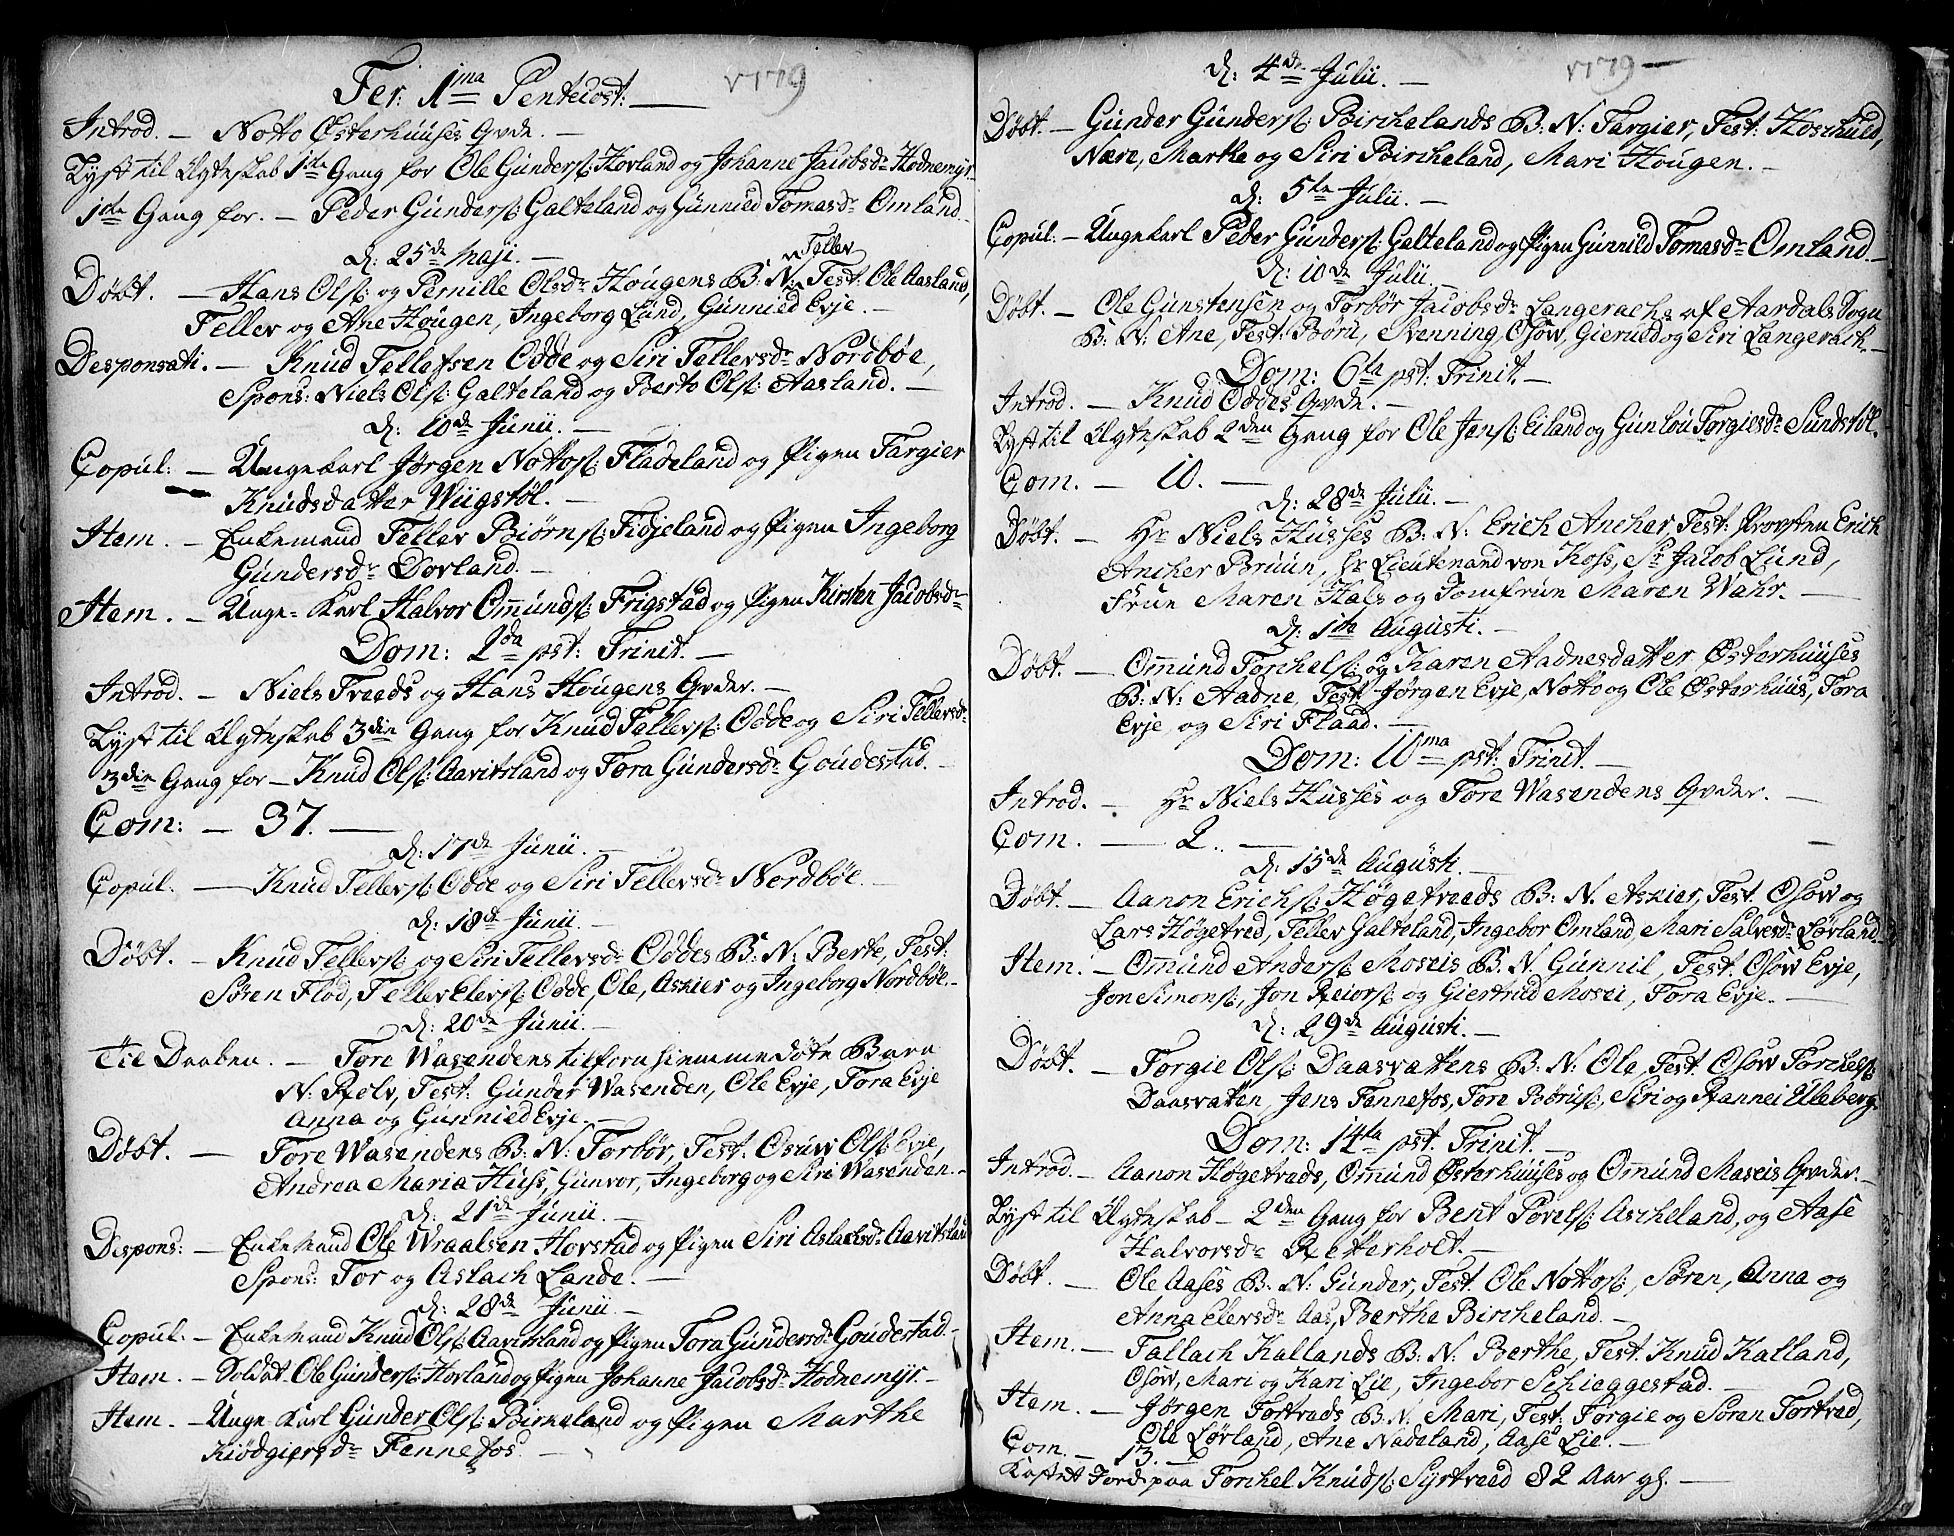 Fer: 1ma Pentecost: — 1779
Introd. — Notto Østerhuuses Qvde. —
Lyst til Ægteskab 1ste Gang for Ole Gunders: Hovland og Johanne Jacobsdr Hodnemyr
1ste Gang for. — Peder Gunders: Galteland og Gunnild Tomasdr Omland.
d: 25de Maji. —
Døbt. — Hans Ols: og Pernille Olsdr Hougens B: N: Tellev Test: Ole Aasland,
Tellev og Ane Hougen, Ingeborg Lund, Gunnild Evje. —
Desponsati. — Knud Tellefsen Odde og Siri Tellevsdr Nordbøe,
Spons: Niels Ols: Galteland og Berto Ols: Aasland. —
d: 10de Junii. —
Copul: — Ungekarl Jørgen Nottos: Fladeland og Pigen Targier
Knudsdatter Wiigstøl. —
Item. — Enkemand Tellev Biørns: Fidjeland og Pigen Ingeborg
Gundersdr Dovland. —
Item. — Unge-Karl Halvor Omunds: Frigstad og Pigen Kirsten Jacobsdr
Dom: 2da pst: Trinit. —
Introd. — Niels Treeds og Hans Hougens Qvder. —
Lyst til Ægteskab 3die Gang for Knud Tellevs: Odde og Siri Tellevsdr
3die Gang for — Knud Ols: Aavitsland og Tora Gundersdr Goudestad. —
Com: — 37. —
d: 17de Junii. —
Copul. — Knud Tellevs: Odde og Siri Tellevsdr Nordbøe. —
d: 18de Junii. —
Døbt. — Knud Tellevs: og Siri Tellevsdr Oddes B: N: Berte, Test:
Søren Flod, Tellev Elevs: Odde, Ole, Askier og Ingeborg Nordbøe. —
d: 20de Junii. —
Til Daaben. — Tore Wasendens tilforn hiemmedøte Barn
N: Relv, Test: Gunder Wasenden, Ole Evje, Tora Evje
Anna og Gunnild Evje. —
Døbt. — Tore Wasendens B: N: Torbør, Test: Osuw Ols: Evje,
Andrea Maria Huss, Gunvor, Ingeborg og Siri Wasenden. —
d: 21de Junii. —
Despons: — Enkemand Ole Wraalsen Hovstad og Pigen Siri Aslachsdr Aavitsland
Spons: Tor og Aslach Lande. —
d: 28de Junii. —
Copul: — Enkemand Knud Ols: Aavitsland og Pigen Tora Gundersdr Goudestad. —
Item. — Soldat Ole Gunders: Hovland og Pigen Johanne Jacobsdr Hodnemyr. —
Item. — Unge-Karl Gunder Ols: Birkeland og Pigen Marthe
Kiødgiersdr Fennefos. —
d: 4de Julii. — 1779 —
Døbt. — Gunder Gunders: Birchelands B: N: Targier, Test: Hoschuld,
Nære, Marthe og Siri Bircheland, Mari Hougen. —
d: 5te Julii. —
Copul: — Ungekarl Peder Gunders: Galteland og Pigen Gunnild Tomasdr Omland. —
d: 10de Julii
Døbt. — Ole Gunstensen og Torbør Jacobsdr Langerachs af Aardals Sogn
B: N: Ane, Test: Boru, Svenning, Osow, Gierull og Siri Langerach. —
Dom: 6ta pst: Trinit. —
Introd. — Knud Oddes Qvde. —
Lyst til Ægteskab 2den Gang for Ole Jens: Eiland og Gunlou Torgiesdr Sundstøl.
Com. — 10. —
d: 28de Julii. —
Døbt. — Hr Niels Husses B: N: Erich Ancher, Test: Provsten Erich
Ancher Bruun, Hr Lieutenand von Koss, Sr Jacob Lund,
Frue Maren Hals og Jomfrue Maren Wahr. —
d: 1ste Augusti. —
Døbt. — Omund Torchels: og Karen Aadnesdatter Østerhuuses
B: N: Aadne, Test: Jørgen Evje, Notto og Ole Østerhuus, Tora
Evje og Siri Flaad. —
Dom: 10ma pst: Trinit. —
Introd. — Hr Niels Husses og Tore Wasendens Qvder. —
Com. — 2. —
d: 15de Augusti. —
Døbt. — Aanon Erichs: Høgetveeds B: N: Askier, Test: Osow og
Lars Høgetved, Tellev Galteland, Ingebor Omland, Mari Salvesdr Lørland. —
Item. — Omund Anders: Moseis B: N: Gunnil, Test: Osow Evje,
Jon Simons:, Jon Reiers: og Giertrud Mosei, Tora Evje. —
d: 29de Augusti. —
Døbt. — Torgie Ols: Daasvattens B: N: Ole, Test: Osow Torchels:
Daasvatten, Jens Fennefos, Tore Børus:, Siri og Rannei Uleberg.
Dom: 14ta pst: Trinit. —
Introd. — Aanon Høgetveds, Omund Østerhuuses og Omund Moseis Qvder. —
Lyst til Ægteskab — 2den Gang for Bent Porels: Ascheland, og Aase
Halvorsdr Retterholt. —
Døbt. — Ole Aases B: N: Gunder, Test: Ole Nottos:, Søren, Anna og
Anna Elevsdr Aas, Berthe Bircheland. —
Item. — Tallach Kallands B: N: Berthe, Test: Knud Kalland,
Osow, Mari og Kari Lie, Ingebor Schieggestad. —
Item. — Jørgen Tortveds B: N: Mari, Test: Torgie og Søren Tortved,
Ole Lørland, Ane Nadeland, Aase Lie. —
Com. — 13. —
Kastet Jord paa Torchel Knuds: Syrtveed 82 Aar gl. —